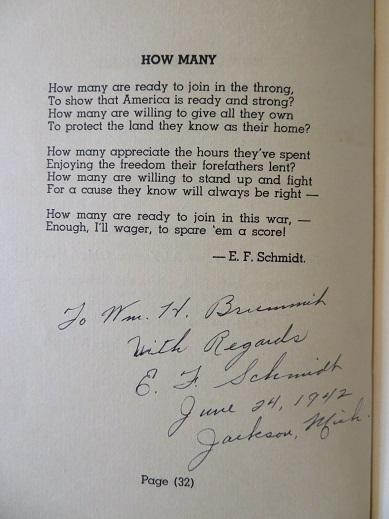 HOW MANY
How many are ready to join in the throng,
To show that America is ready and strong?
How many are willing to give all they own
To protect the land they know as their home?
How many appreciate the hours they've spent
Enjoying the freedom their forefathers lent?
How many are willing to stand up and fight
For a cause they know will always be right —
How many are ready to join in this war, —
Enough, I'll wager, to spare 'em a score!
— E. F. Schmidt.
To Wm. H.
With Regards
E. F. Schmidt
June 24, 1942
Jackson, Mich.
Page (32)